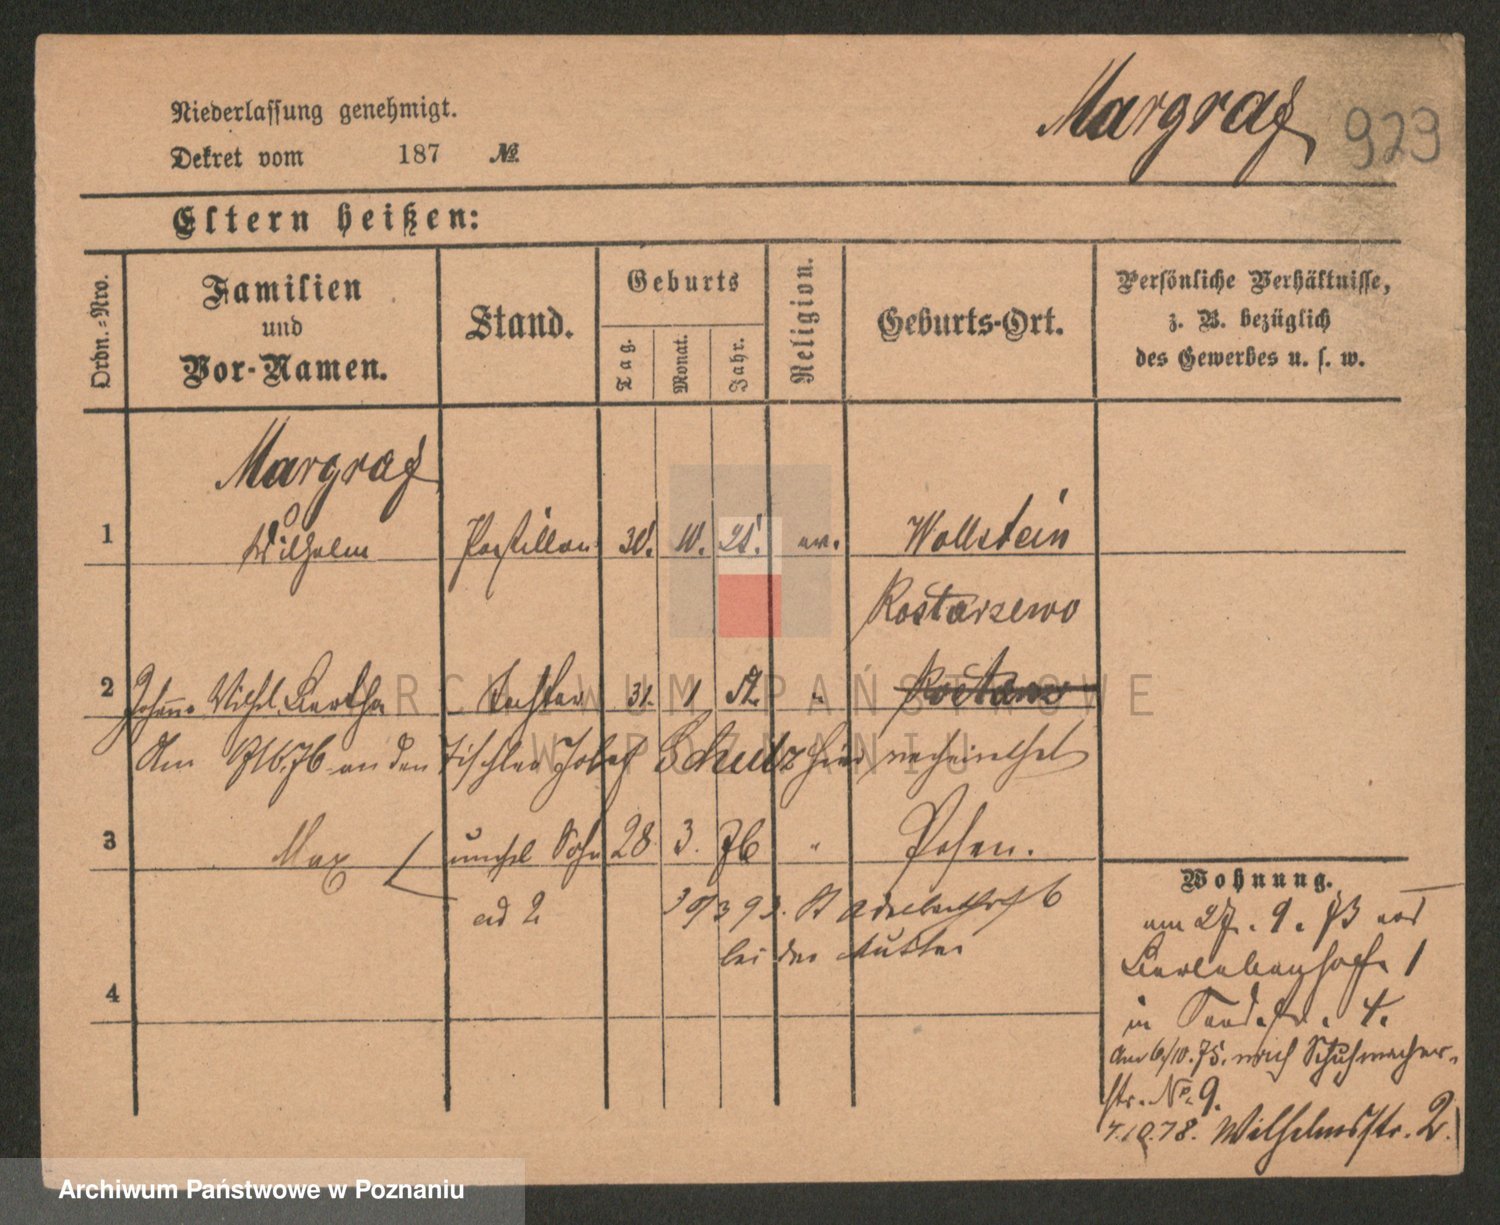 Niederlassung genehmigt.
Dekret vom 187 №
Margraf 929
Eltern heißen:
Ordn.-Nro.
Familien und Vor-Namen.
Stand.
Geburts
Tag.
Monat.
Jahr.
Religion.
Geburts-Ort.
Persönliche Verhältnisse,
z. B. bezüglich
des Gewerbes u. s. w.
Margraf
1 Wilhelm Postillon 30. 10. 21. ev. Wollstein
Rostarzewo
2 Wilh. Bertha Tochter 31. 1 " 
Am an den Tischler Schulz hier verheirathet
3 Max unehel Sohn 28 3. 76 " Posen.
ad 2
bei der Mutter
4
Wohnung.
am 27. 9. 73 von
1
in 4.
Am 6/10.75. nach Schuhmacher-
str. No. 9.
7.10.78. Wilhelmsstr. 2.
ARCHIWUM PAŃSTWOWE
W POZNANIU
Archiwum Państwowe w Poznaniu